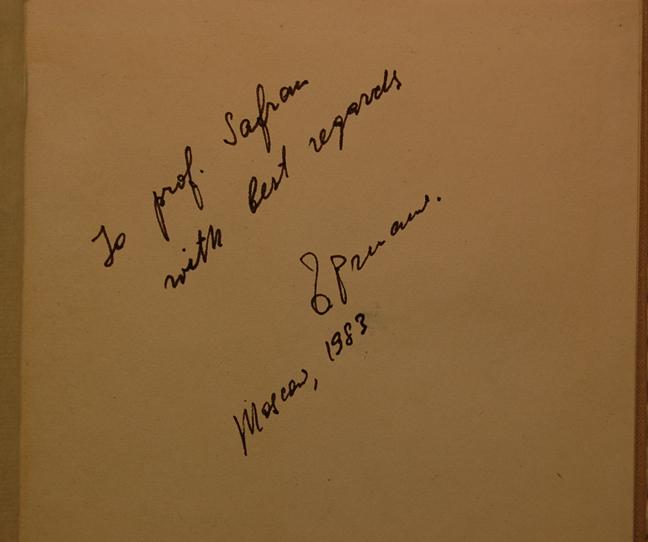 To prof. Safran
with best regards
Moscow, 1983